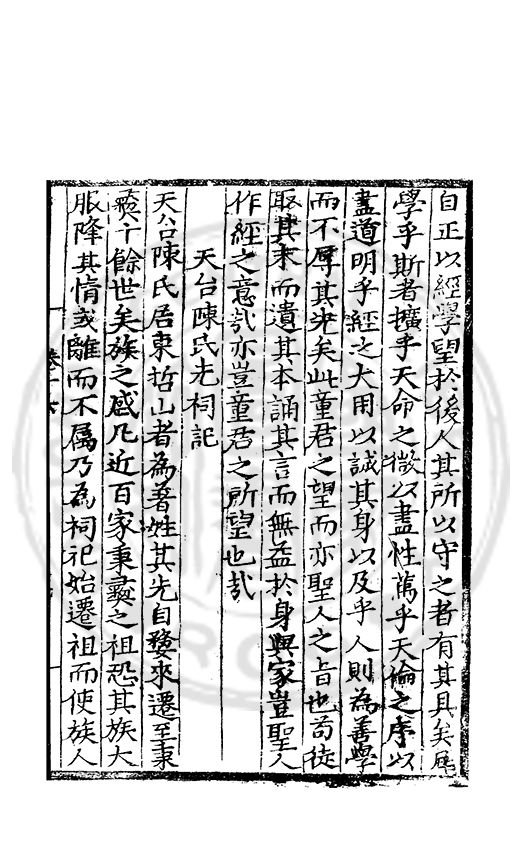 自正以經學望於後人其所以守之者有其具矣居
學乎斯者擴乎天命之微以盡性篤乎天倫之序以
盡道明乎經之大用以誠其身以及乎人則為善學
而不辱其先矣此童君之望而亦聖人之旨也苟徒
取其末而遺其本誦其言而無益於身與家豈聖人
作經之意㢤亦豈童君之所望也㢤
天台陳氏先祠記
天台陳氏居東哲山者為著姓其先自婺來遷至秉
彜十餘世矣族之盛凡近百家秉彜之祖恐其族大
服降其情或離而不屬乃為祠祀始遷祖而使族人
卷十六